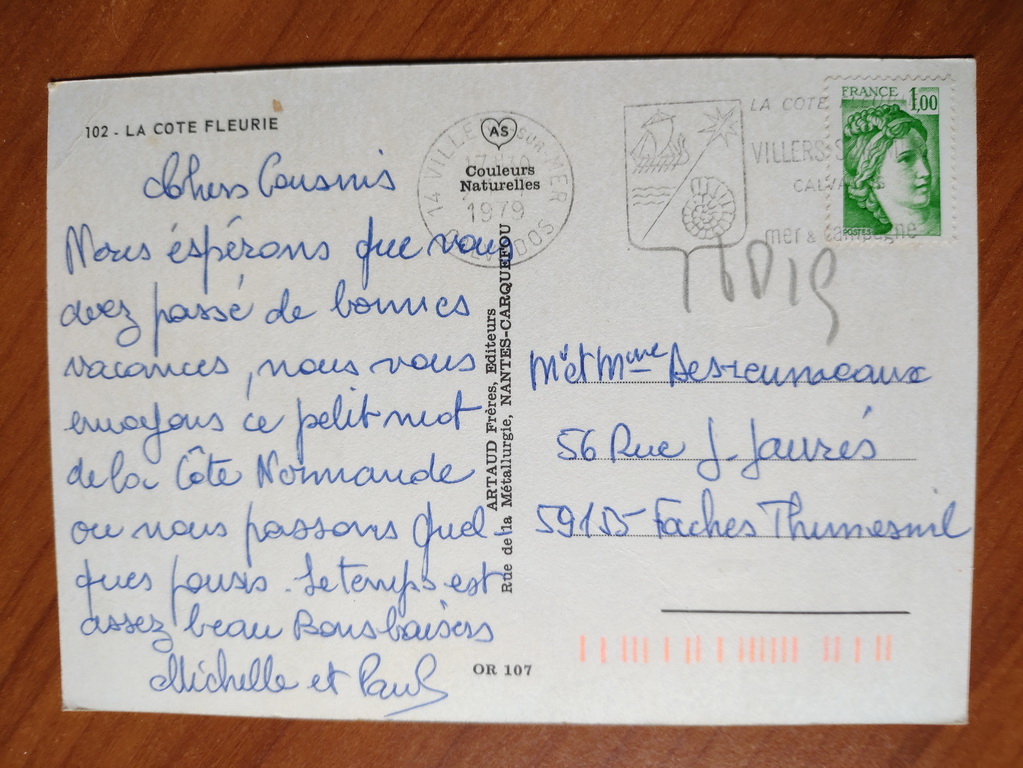 102 - LA COTE FLEURIE
Chers Cousins
Nous éspérons que vous
avez passé de bonnes
vacances, nous vous
envoyons ce petit mot
de la Côte Normande
ou nous passons quel-
ques jours. Le temps est
assez beau Bons baisers
Michelle et Paul
14 VILLERS-SUR-MER
1979
CALVADOS
AS
Couleurs
Naturelles
ARTAUD Frères, Editeurs
Rue de la Métallurgie, NANTES-CARQUEFOU
OR 107
LA COTE FLEURIE
VILLERS S
CALVADOS
mer & campagne
FRANCE 1,00
POSTES
Mr et Mme Desreumeaux
56 Rue J. Jaurés
59155 Faches Thumesnil